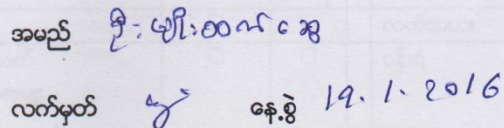 အမည် ဦးမျိုးထက်ဆွေ
လက်မှတ် နေ့စွဲ 19.1.2016